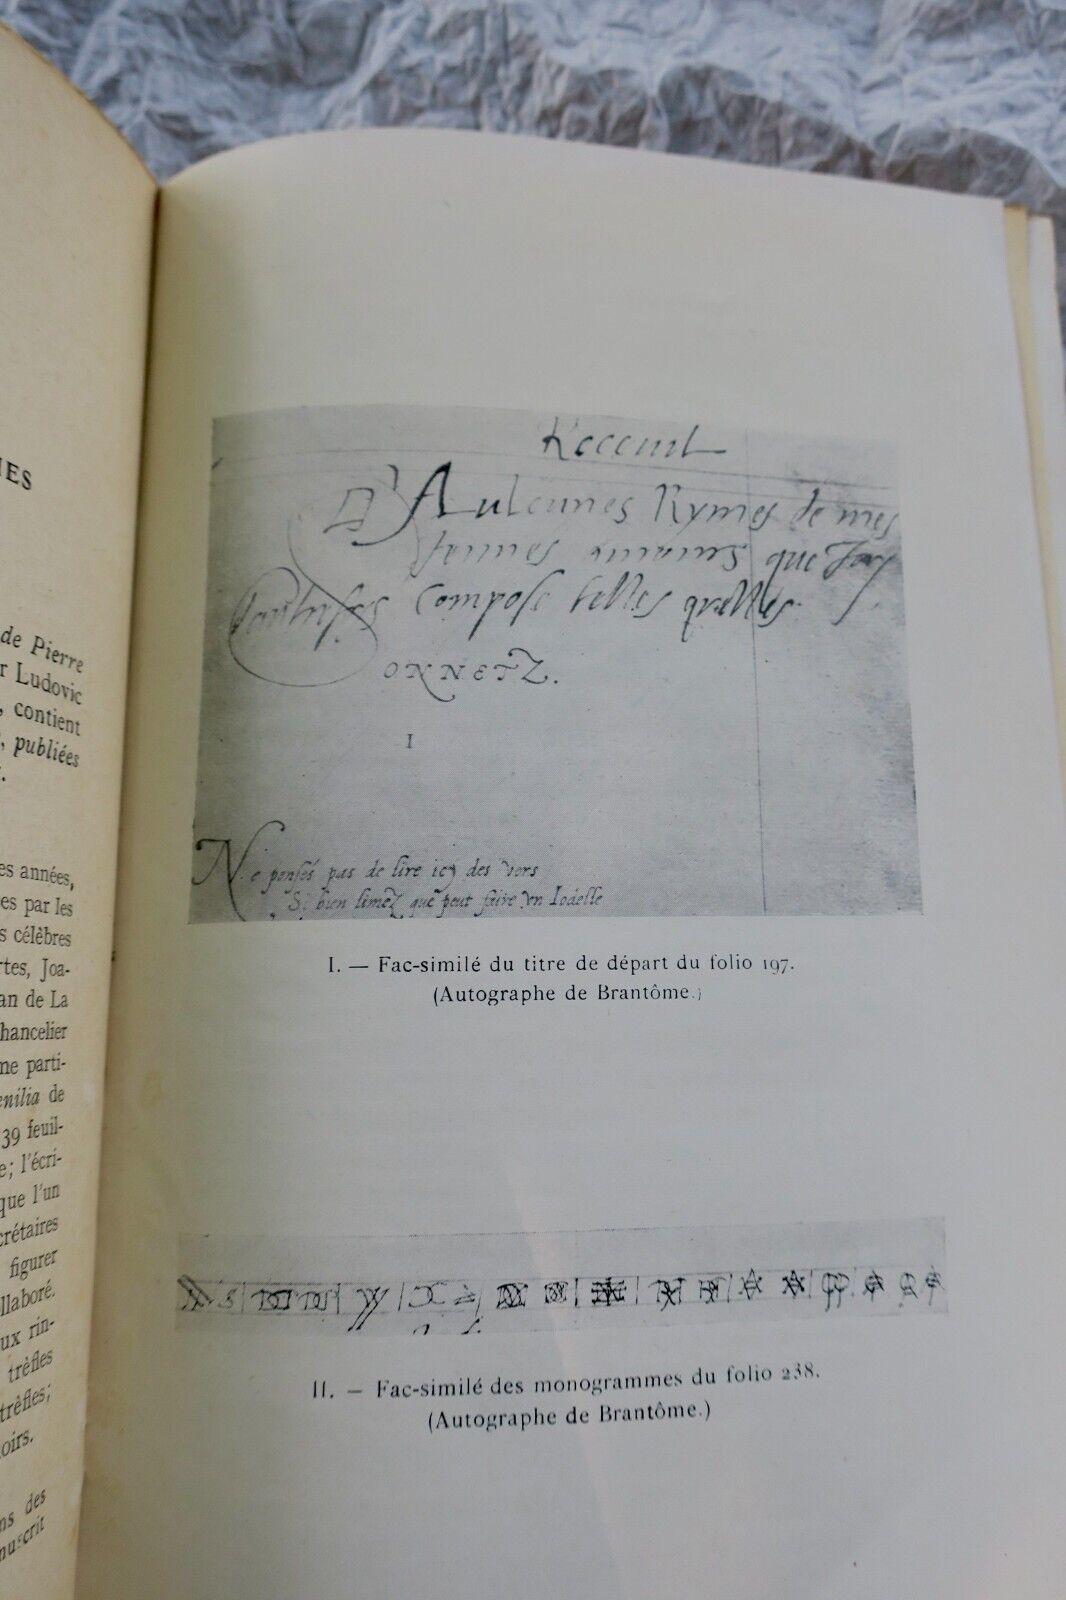 NES
de Pierre
r Ludovic
, contient
, publiées
es années,
es par les
s célèbres
rtes, Joa-
an de La
hancelier
ne parti-
enilia de
39 feuil-
e; l'écri-
que l'un
crétaires
figurer
llaboré.
ux rin-
trèfles
trêfles;
oirs.
ns des
nuscrit
Receuil
d'Aulcunes Rymes de mes
jeunes amours que j'ay
d'autresfois Composé telles quelles
SONNETZ.
I
Ne pensés pas de lire icy des vers
Si bien limez que peut faire vn Iodelle
I. — Fac-similé du titre de départ du folio 197.
(Autographe de Brantôme.)
II. — Fac-similé des monogrammes du folio 238.
(Autographe de Brantôme.)